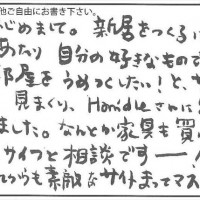 他ご自由にお書き下さい。
じめまして。新居をつくるに
あたり 自分の好きなもので
部屋をうめつくしたい！と、サ
見まくり、Handleさんに
ました。なんとか家具も買
サイフと相談です——
れからも素敵なサイトまってマス